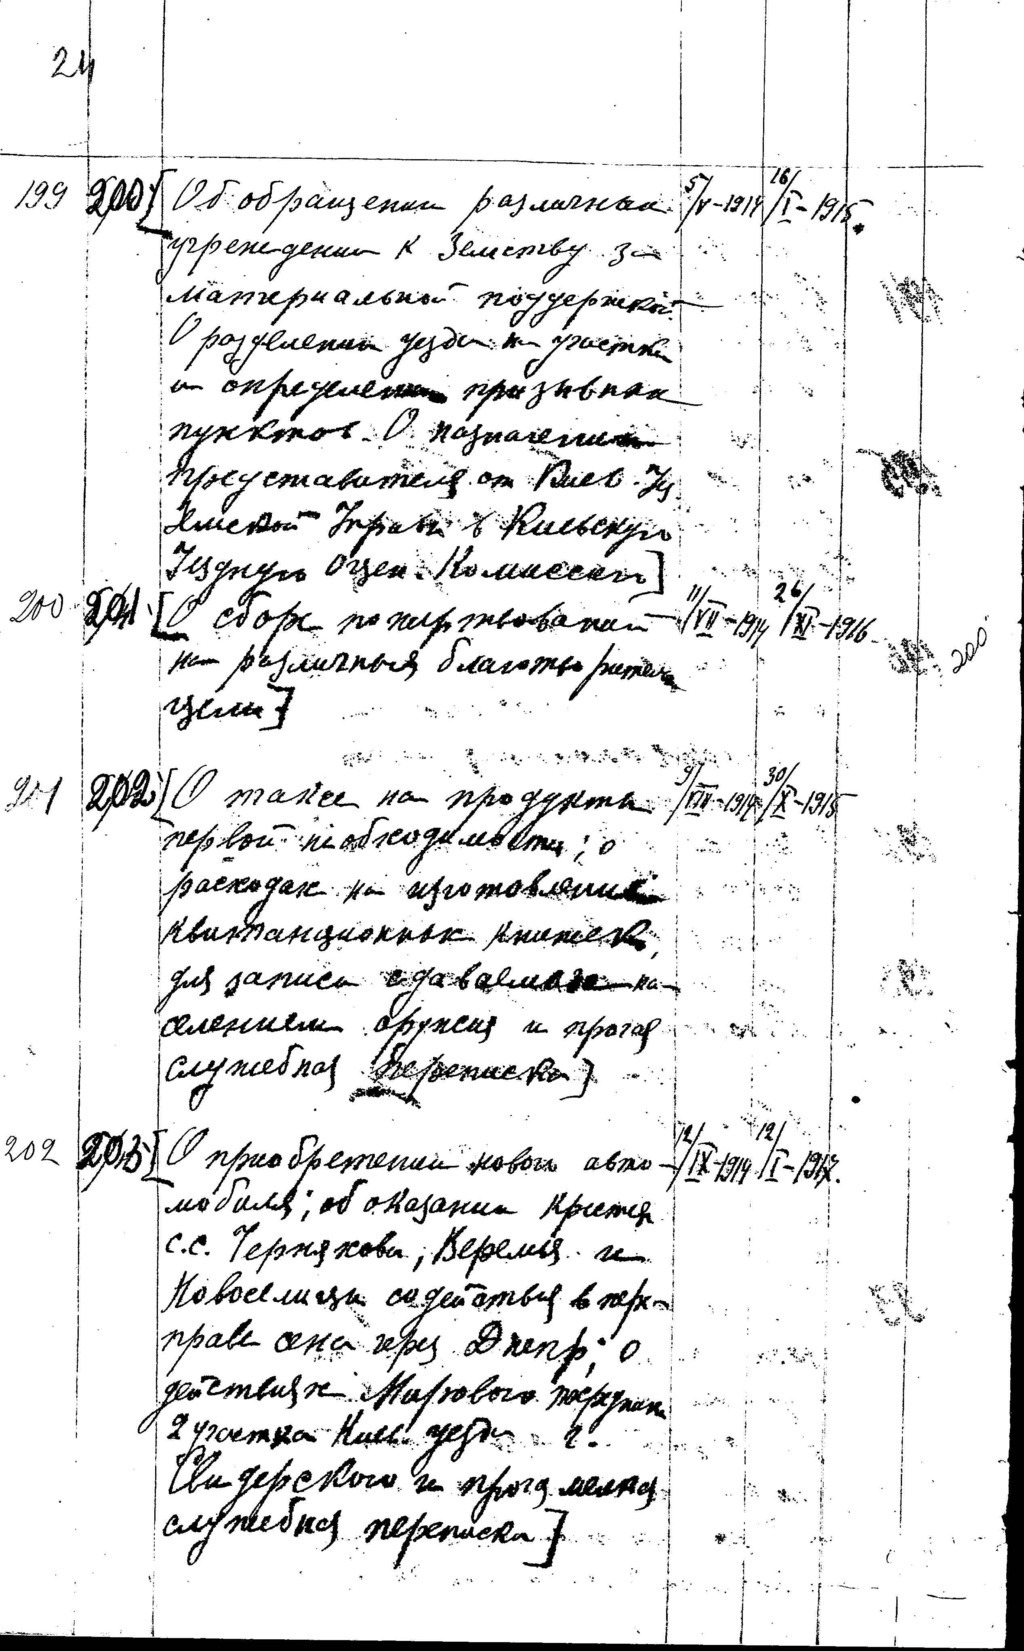 24
199 200 [Об обращении различных 5/V-1914 16/I-1915.
учреждений к Земству за
материальной поддержкой
О разделении уезда на участки
и определении призывных
пунктов. О назначении
представителя от Киев. Уз.
Земской Управы в Киевскую
Уездную Оцен. Комиссию]
200 201 [О сборе пожертвований 11/VII-1914 26/XI-1916
на различныя благотворительн 200
цели]
201 202 [О таксе на продукты 9/VIII-1914 30/X-1915
первой необходимости; о
расходах на изготовление
квитанционных книжек,
для записи сдаваемого на-
селением оружия и прочая
служебная переписка]
202 203 [О приобретении нового авто- 12/IX-1914 12/I-1917.
мобиля; об оказании крестья
с.с. Чернякова, Веремья и
Новоселицы содействия в пере-
праве сена через Днепр; о
действиях Мирового посредник
2 участка Киев. уезда г.
Свидерского и прочая мелкая
служебная переписка]